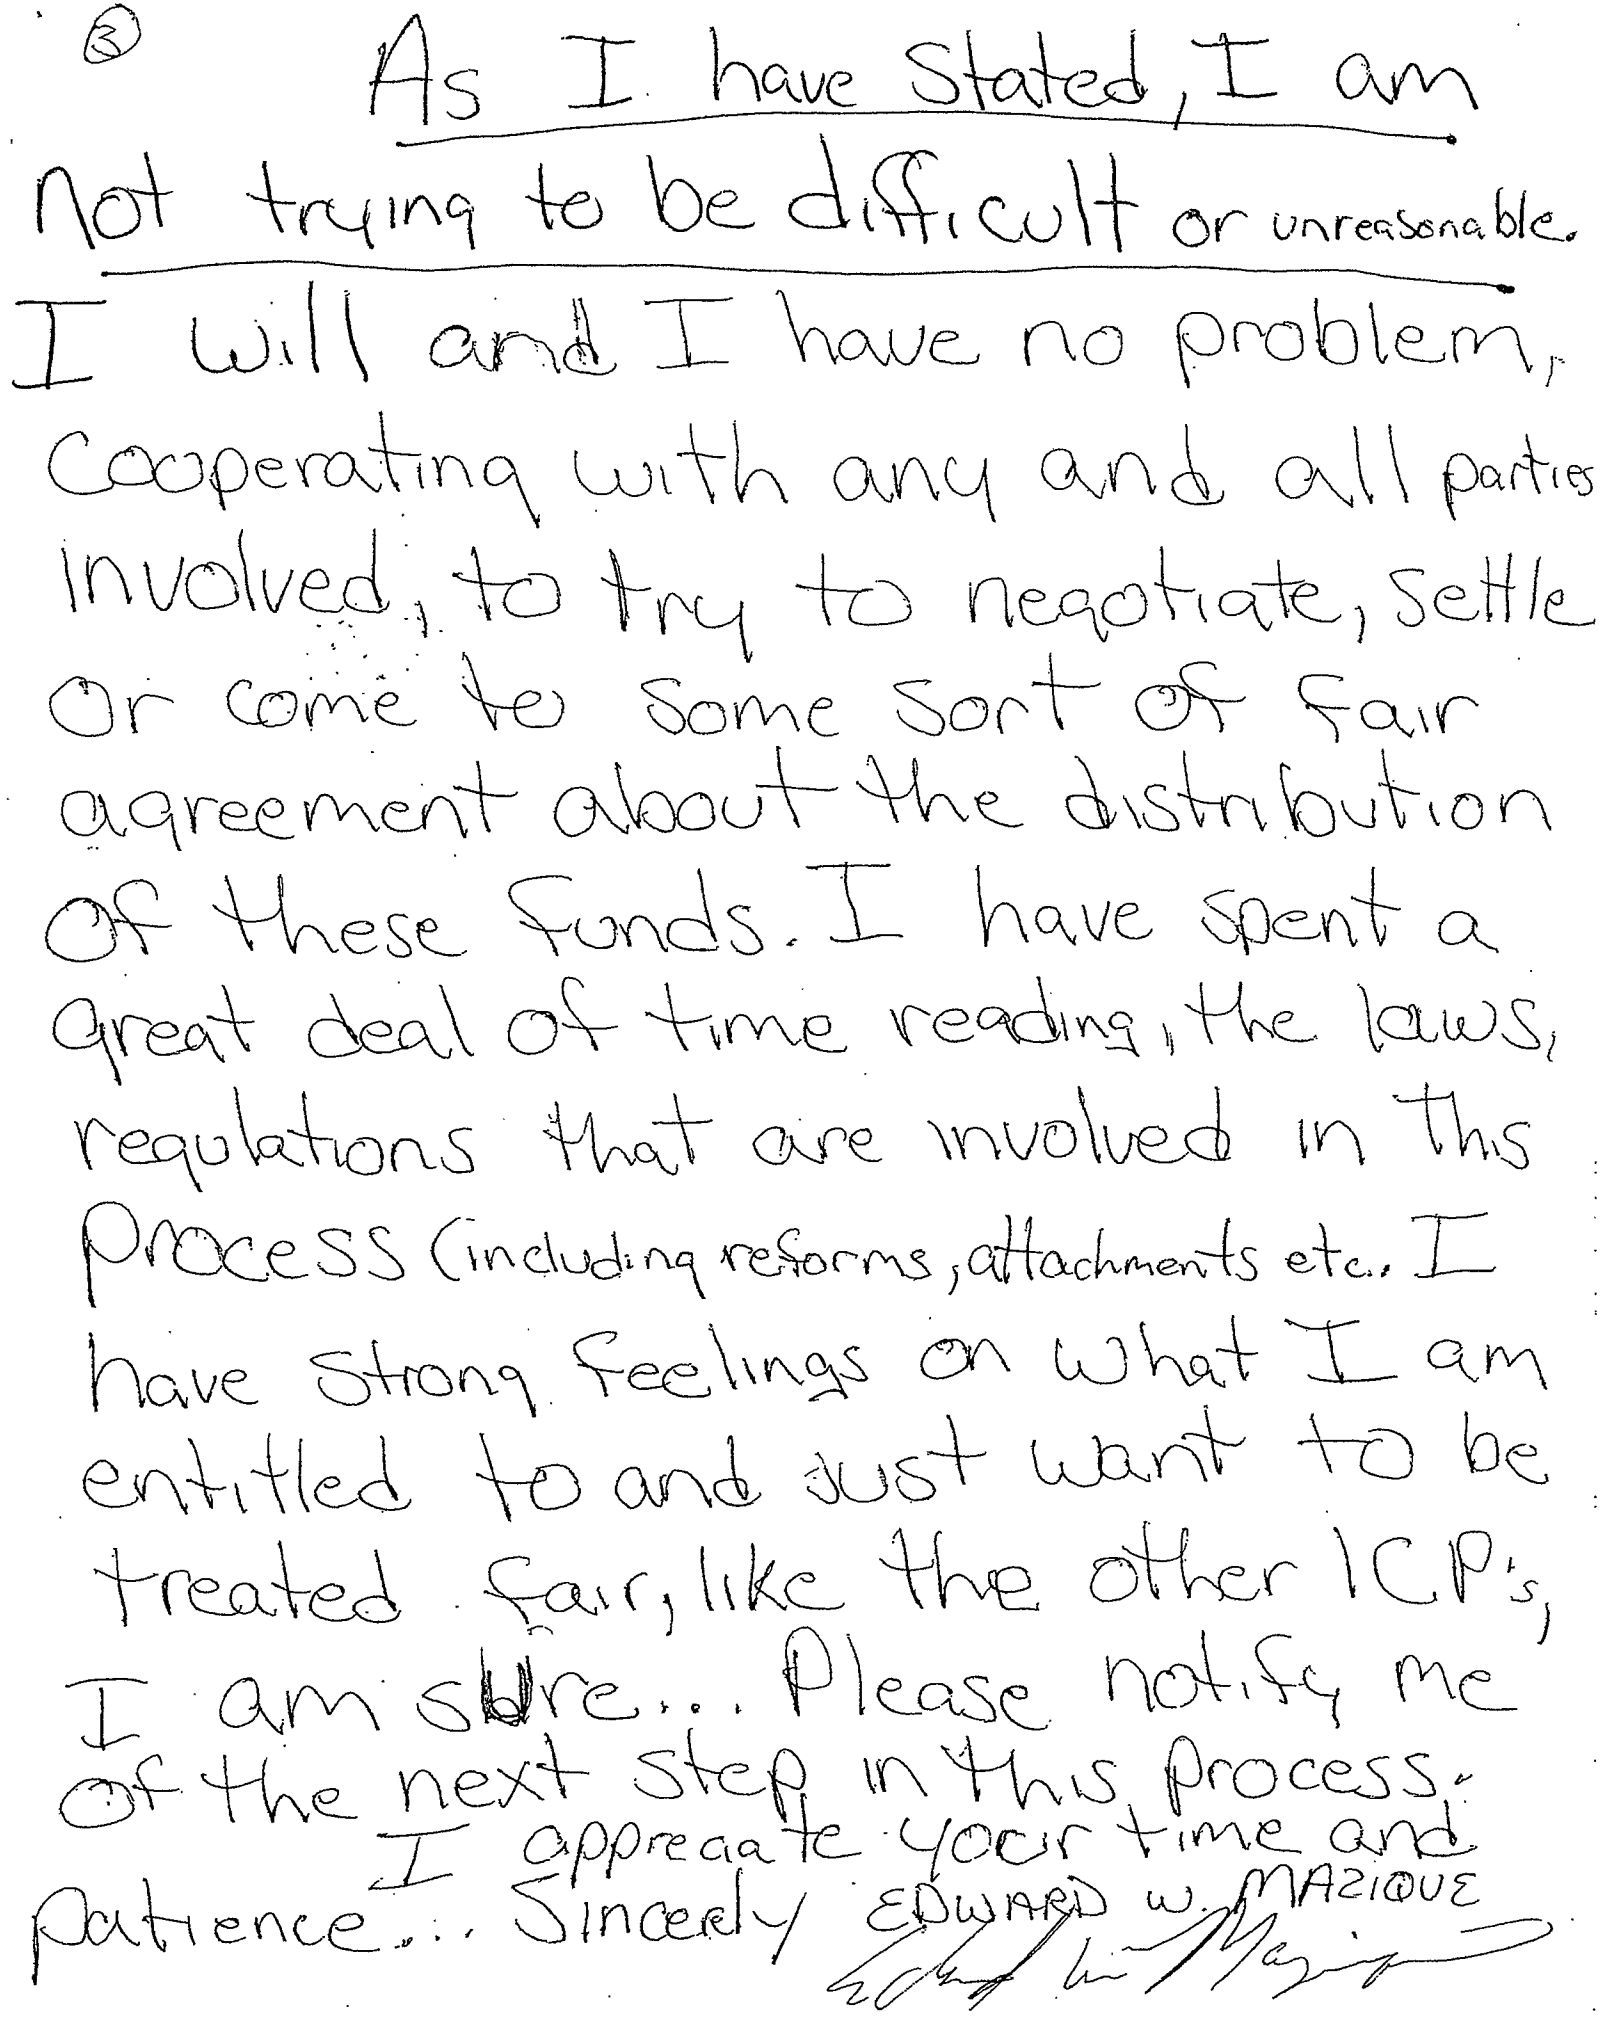 3
As I have Stated, I am
not trying to be difficult or unreasonable.
I will and I have no problem,
cooperating with any and all parties
involved, to try to negotiate, settle
or come to some sort of fair
agreement about the distribution
of these funds. I have spent a
great deal of time reading, the laws,
regulations that are involved in this
process (including reforms, attachments etc.. I
have strong feelings on what I am
entitled to and just want to be
treated fair, like the other ICP's,
I am sure... Please notify me
of the next step in this process.
I appreciate your time and
patience... Sincerly EDWARD W. MAZIQUE
Edward W. Mazique